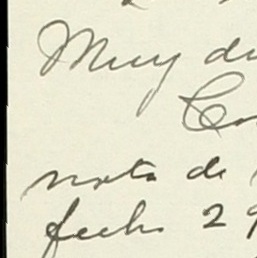 Muy di
Co
nota de
fecha 29